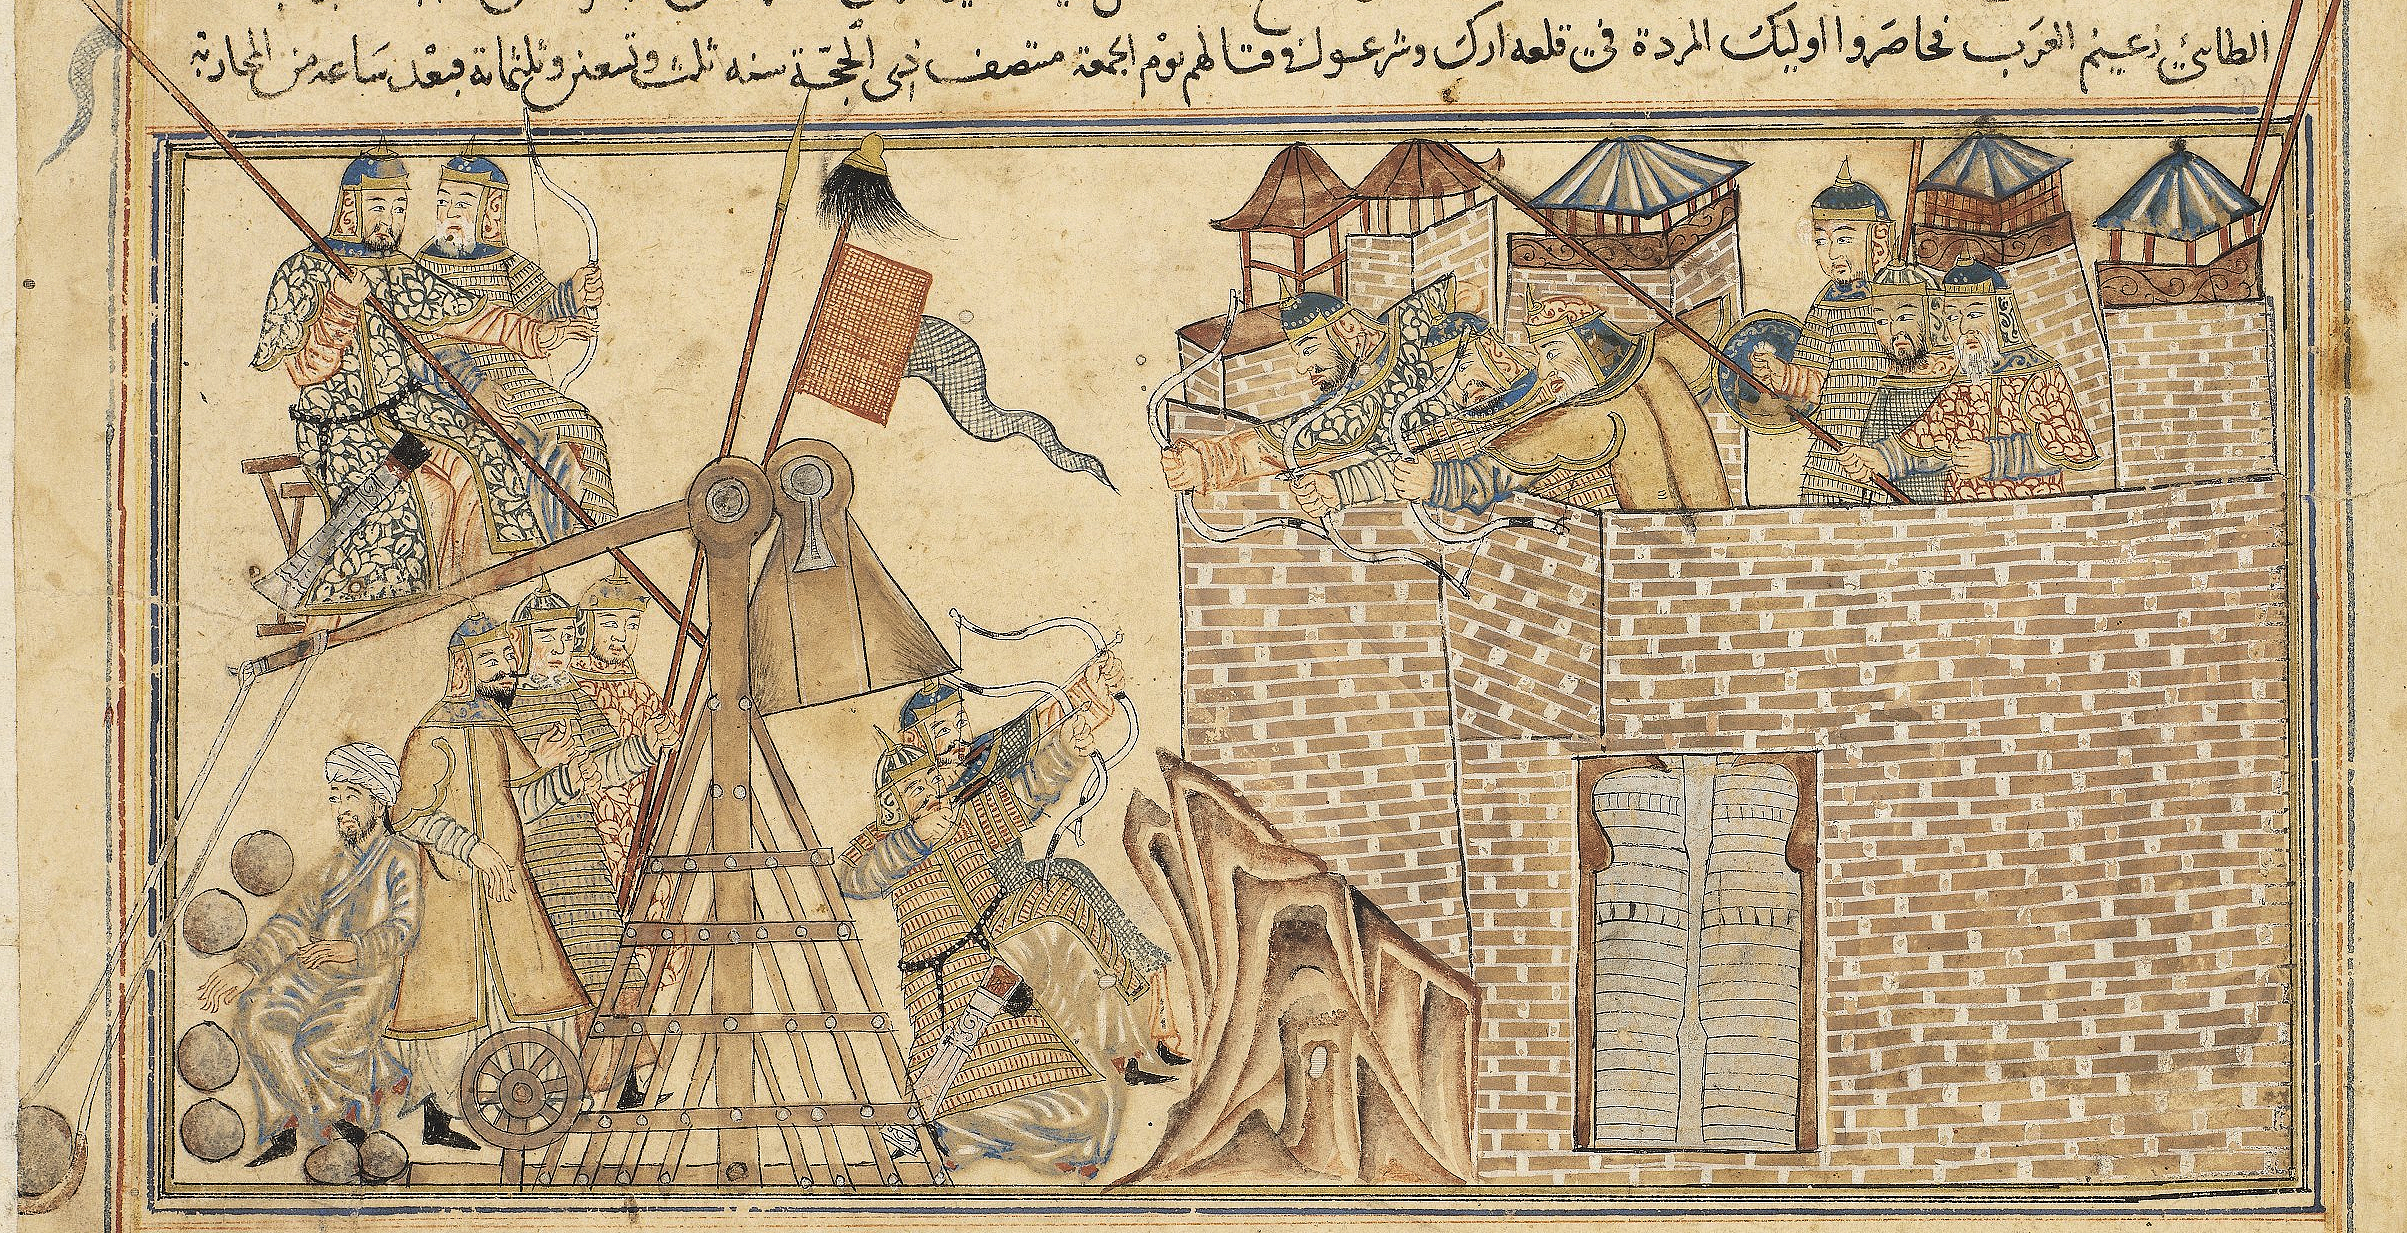 الطائي زعيم العرب فحاصروا اوليك المردة في قلعه ارك وشرعوا في قتالهم يوم الجمعة منتصف ذي الحجّة سنه ثلث وتسعين وثلثماية فبعد ساعة من المحاربة